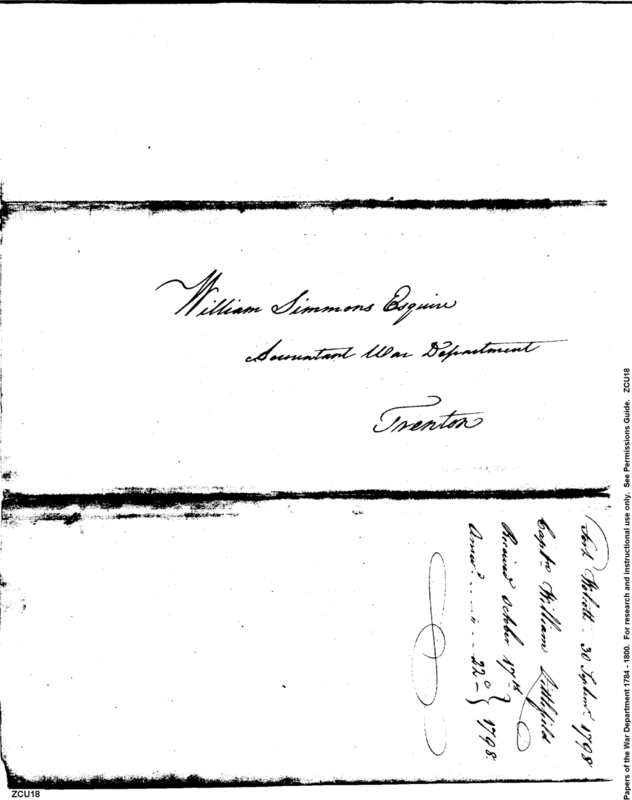 William Simmons Esquire
Accountant War Department
Trenton
Fort Wolcott - 30 Septemr. 1798
Captn. William Littlefield
Received October 17th } 1798.
Answd. . . . . " . . . 22d - }
Papers of the War Department 1784 - 1800. For research and instructional use only. See Permissions Guide. ZCU18
ZCU18